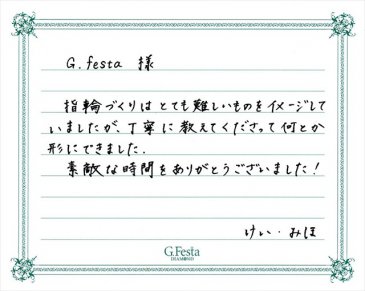 G.festa 様
指輪づくりはとても難しいものをイメージして
いましたが、丁寧に教えてくださって何とか
形にできました.
素敵な時間をありがとうございました!
けい・みほ
G.Festa
DIAMOND